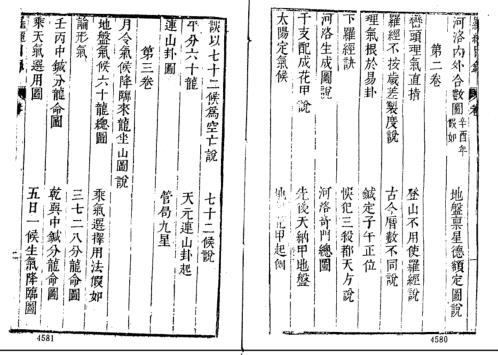 河洛内外合數圖 辛酉年假如 地盤稟星德額定圖說
第二卷
巒頭理氣直捎 登山不用使羅經說
羅經不按歲差製度說 古今曆數不同說
理氣根於易卦 鍼定子午正位
下羅經訣 悞犯三殺都天方說
河洛生成圖說 河洛奇門總圖
干支配成花甲說 先後天納甲地盤
太陽定氣候
4580
談以七十二候爲空亡說 七十二候說
平分六十龍 天元連山卦起
連山卦圖 管局九星
第三卷
月令氣候降臨來龍坐山圖說
地盤氣候六十龍總圖 乘氣選擇用法假如
論形氣 三七二八分龍命圖
壬丙中鍼分龍命圖 乾巽中鍼分龍命圖
乘天氣選用圖 五日一候生氣降臨圖
4581